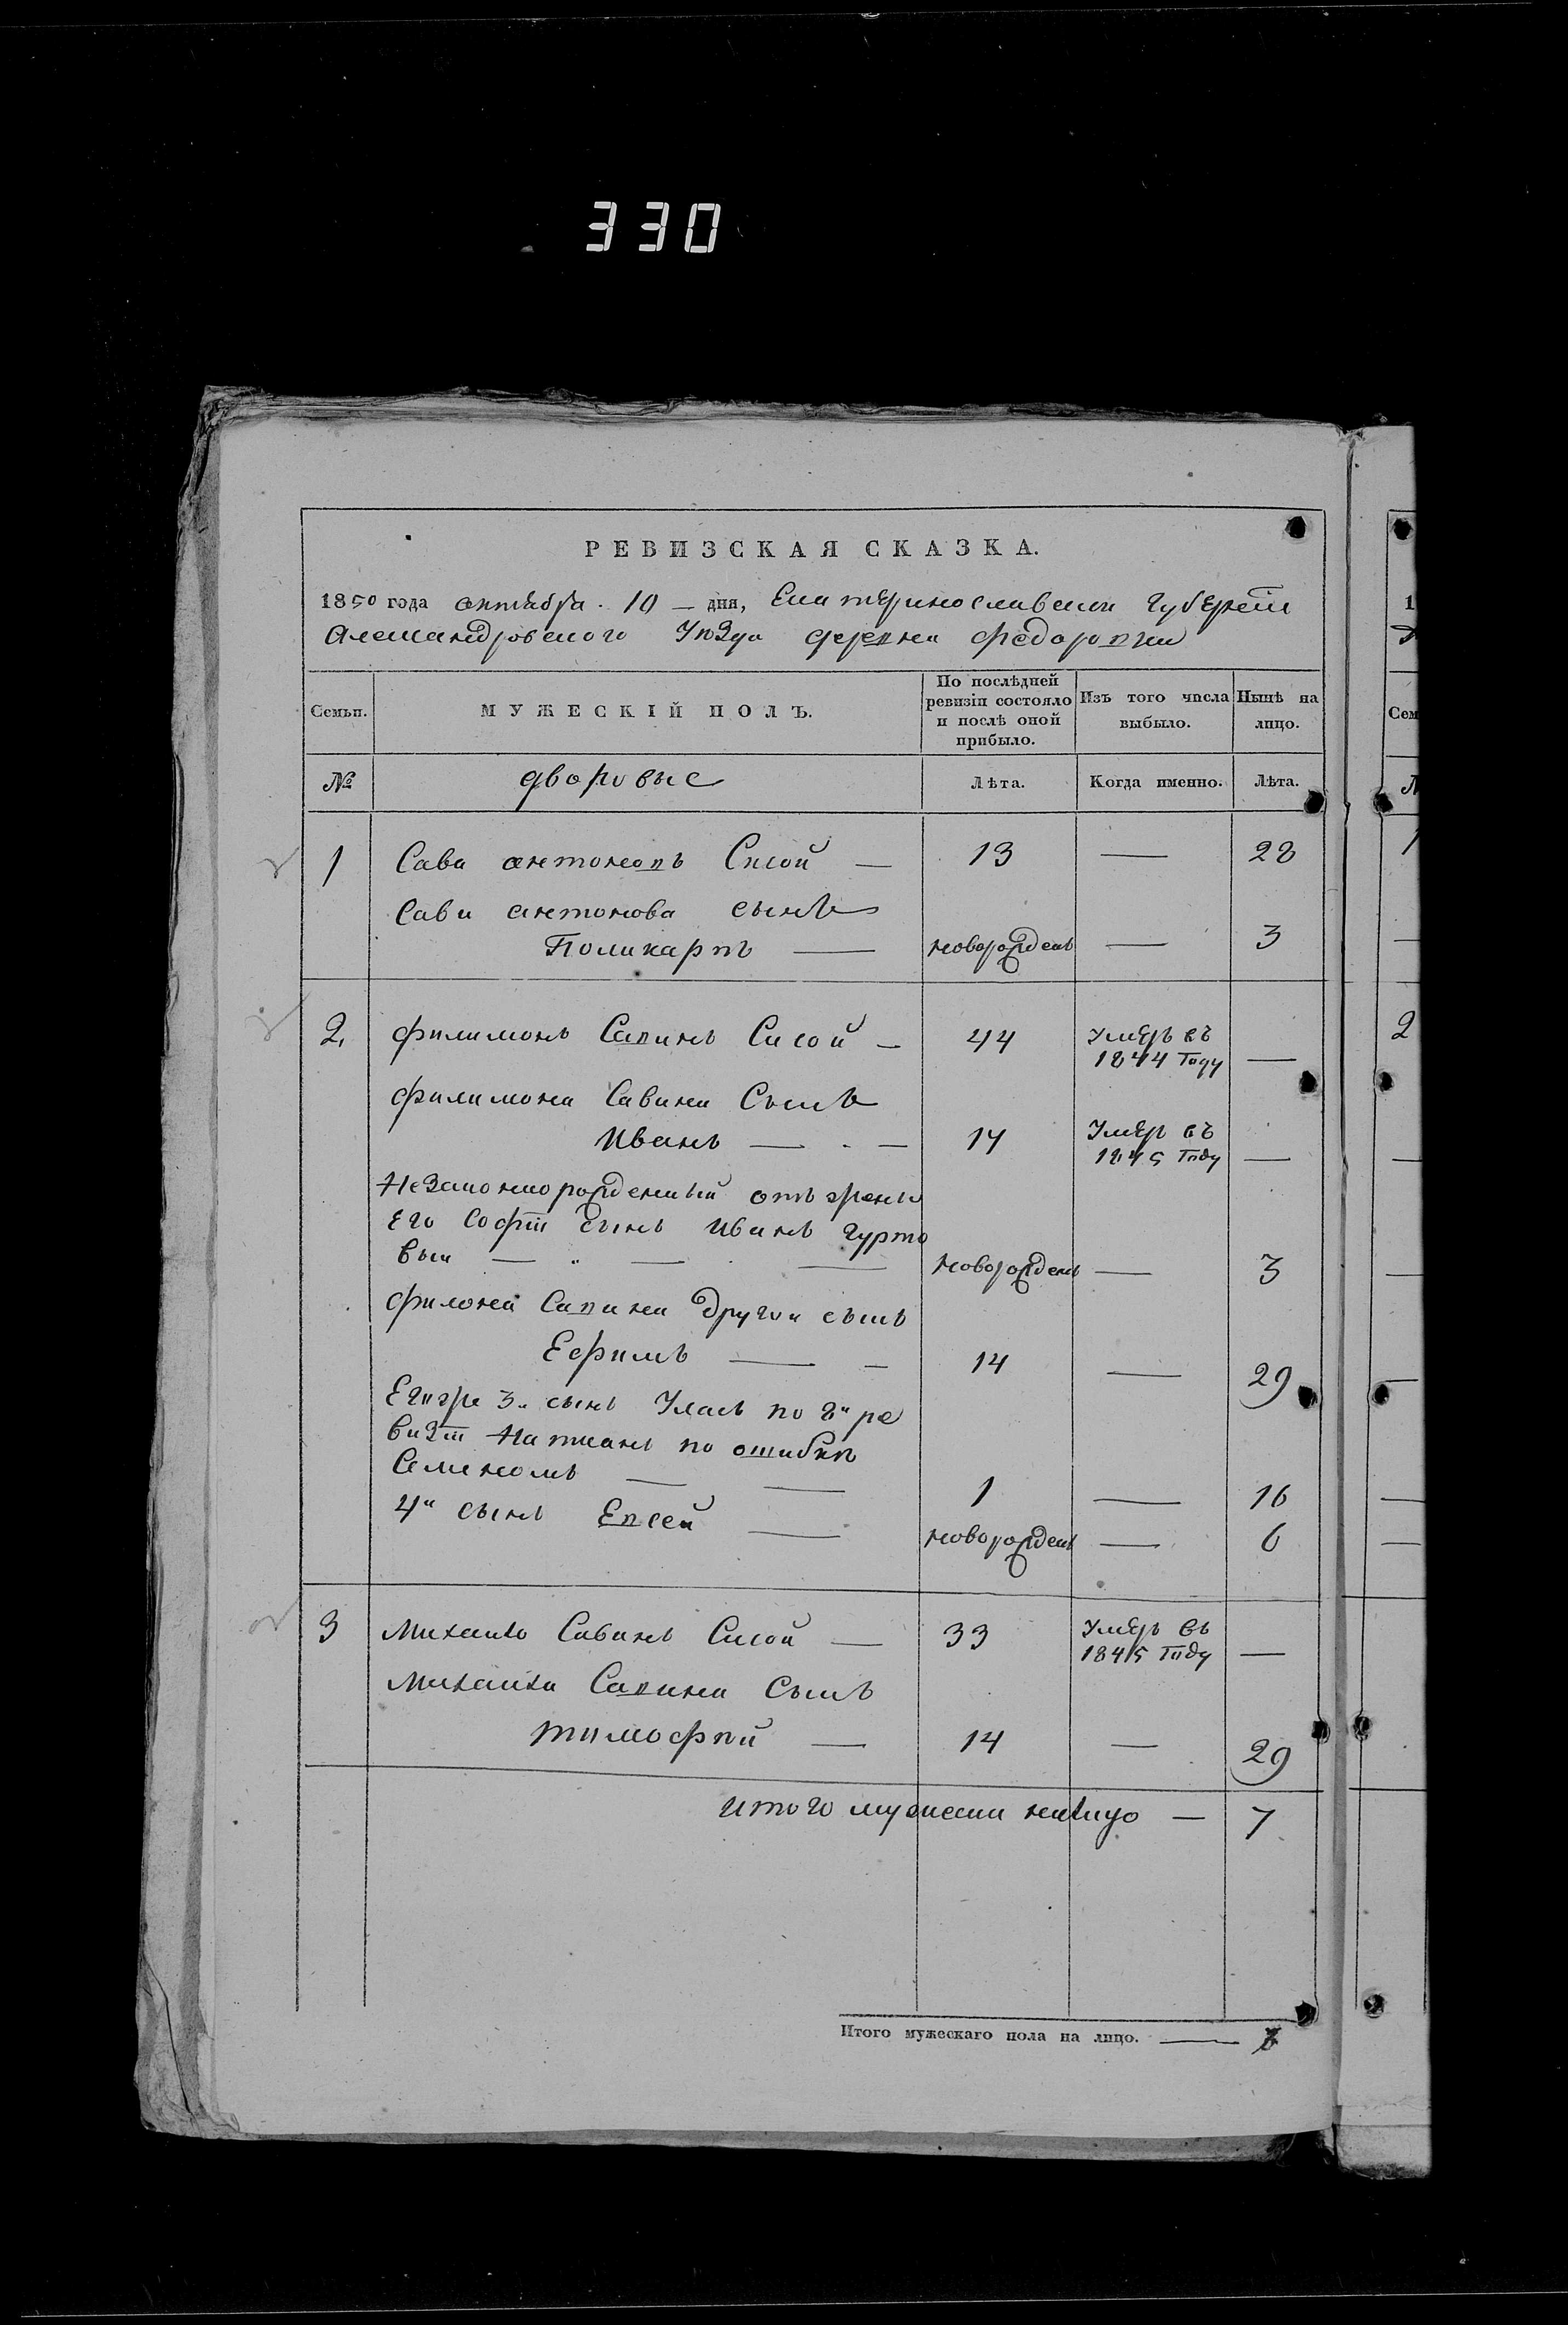 330
РЕВИЗСКАЯ СКАЗКА.
1850 года октября 10 — дня, Екатеринославской Губернїи
Александровского Уѣзда деревни Федоровки
Семьи.
МУЖЕСКІЙ ПОЛЪ.
По послѣдней ревизіи состояло и послѣ оной прибыло.
Изъ того числа выбыло.
Нынѣ на лицо.
№ дворовые Лѣта. Когда именно. Лѣта.
1 Сава антоновъ Сисой — 13 — 28
Сави антонова сынъ
Поликарпъ — новорожденъ — 3
2. филимонъ Савинъ Сисой — 44 Умеръ въ 1844 Году —
филимона Савина Сынъ
Иванъ — 14 Умеръ въ 1845 Году —
Незаконнорожденный отъ жены
Его Софїи сынъ Иванъ Гурто
вый — новорожденъ — 3
филона Савина другой сынъ
Ефимъ — 14 — 29
Егоже 3й сынъ Уласъ по 8й ре
визїи Написанъ по ошибкѣ
Семеномъ — 1 — 16
4й сынъ Евсей — новорожденъ — 6
3 Михайло Савинъ Сисой — 33 Умеръ въ 1845 Году —
Михайла Савина Сынъ
тимофѣй — 14 — 29
итого мужеска налицо — 7
Итого мужескаго пола на лицо. — 7
1
Сем
1
2